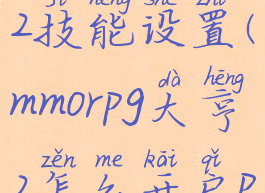 jì néng shè zhì
2技能设置(
dà hēng
mmorpg大亨
zěn me kāi qǐ
2怎么开启P